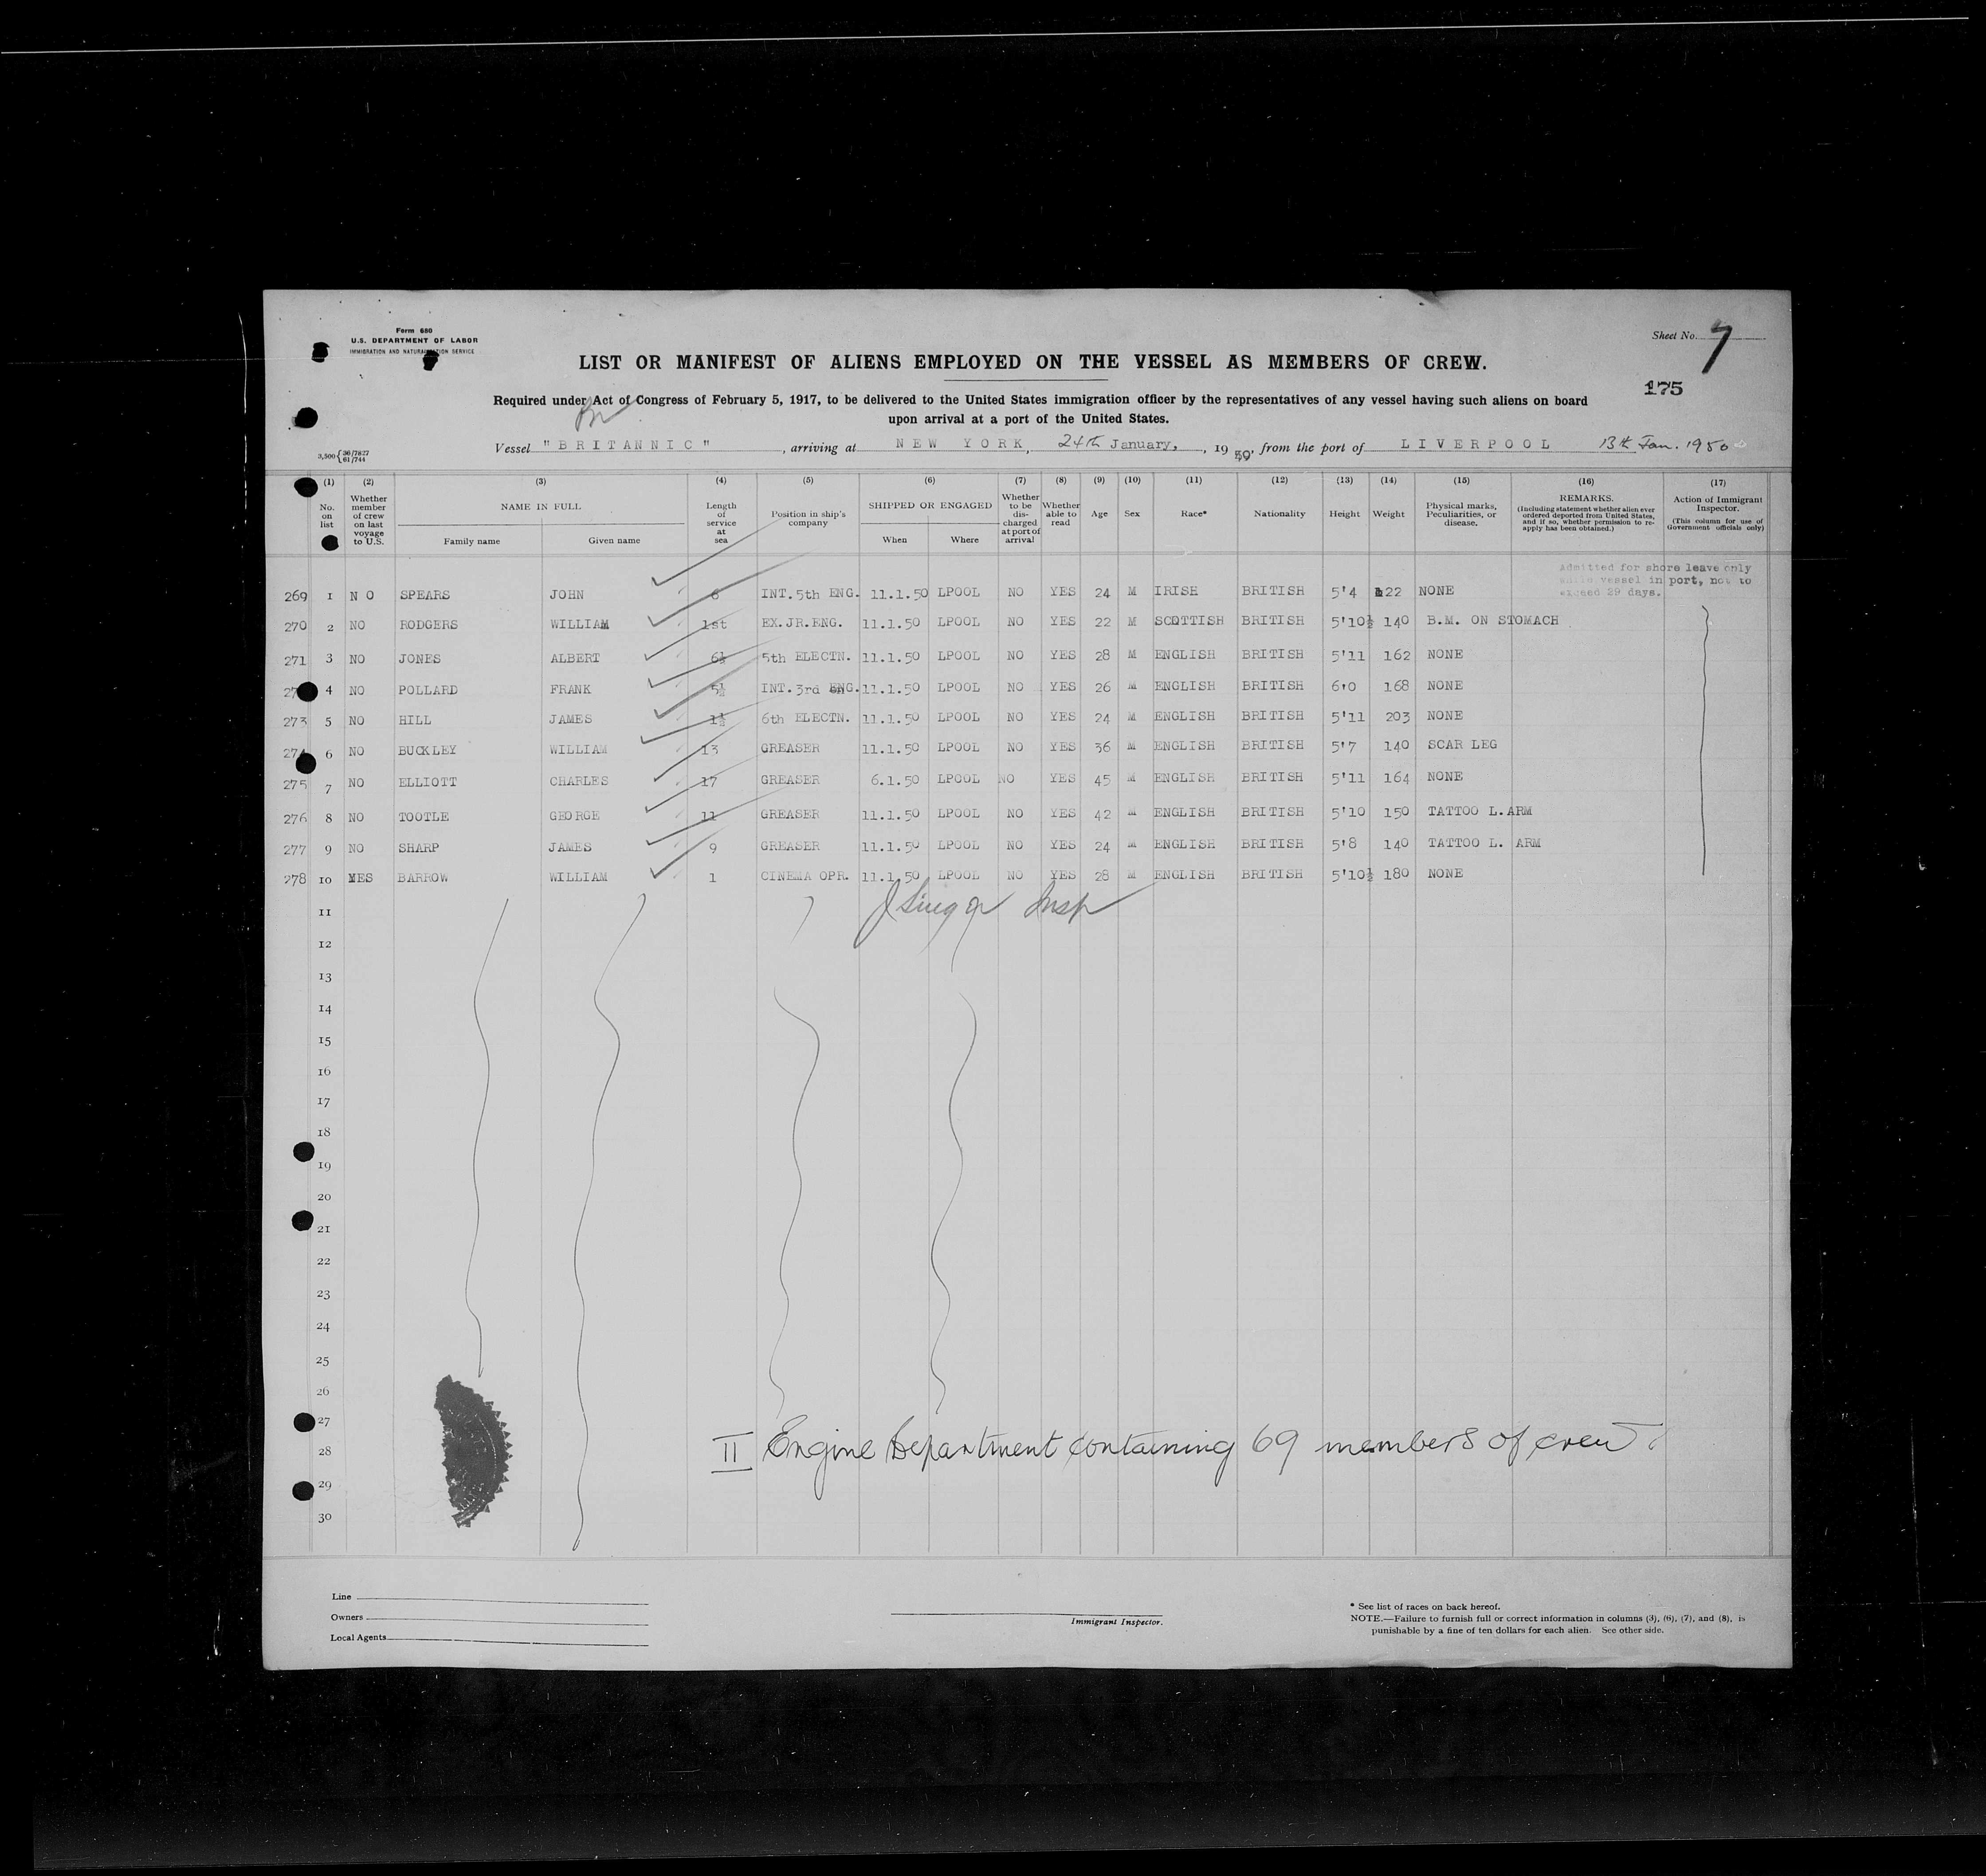 Form 680
U.S. DEPARTMENT OF LABOR
IMMIGRATION AND NATURALIZATION SERVICE
Sheet No. 7
LIST OR MANIFEST OF ALIENS EMPLOYED ON THE VESSEL AS MEMBERS OF CREW.
175
Required under Act of Congress of February 5, 1917, to be delivered to the United States immigration officer by the representatives of any vessel having such aliens on board
upon arrival at a port of the United States.
Br
3,500 {36/7827 61/744
Vessel "BRITANNIC", arriving at NEW YORK, 24th January, , 1950, from the port of LIVERPOOL 13th Jan. 1950
(1) (2) (3) (4) (5) (6) (7) (8) (9) (10) (11) (12) (13) (14) (15) (16) (17)
No. on list
Whether member of crew on last voyage to U.S.
NAME IN FULL
Family name Given name
Length of service at sea
Position in ship's company
SHIPPED OR ENGAGED
When Where
Whether to be discharged at port of arrival
Whether able to read
Age
Sex
Race*
Nationality
Height
Weight
Physical marks, Peculiarities, or disease.
REMARKS.
(Including statement whether alien ever ordered deported from United States, and if so, whether permission to reapply has been obtained.)
Action of Immigrant Inspector.
(This column for use of Government officials only)
Admitted for shore leave only
while vessel in port, not to
exceed 29 days.
269 1 NO SPEARS JOHN 6 INT.5th ENG. 11.1.50 LPOOL NO YES 24 M IRISH BRITISH 5'4 122 NONE
270 2 NO RODGERS WILLIAM 1st EX.JR.ENG. 11.1.50 LPOOL NO YES 22 M SCOTTISH BRITISH 5'10½ 140 B.M. ON STOMACH
271 3 NO JONES ALBERT 6½ 5th ELECTN. 11.1.50 LPOOL NO YES 28 M ENGLISH BRITISH 5'11 162 NONE
27 4 NO POLLARD FRANK 5½ INT.3rd ENG. 11.1.50 LPOOL NO YES 26 M ENGLISH BRITISH 6'0 168 NONE
273 5 NO HILL JAMES 1½ 6th ELECTN. 11.1.50 LPOOL NO YES 24 M ENGLISH BRITISH 5'11 203 NONE
274 6 NO BUCKLEY WILLIAM 13 GREASER 11.1.50 LPOOL NO YES 36 M ENGLISH BRITISH 5'7 140 SCAR LEG
275 7 NO ELLIOTT CHARLES 17 GREASER 6.1.50 LPOOL NO YES 45 M ENGLISH BRITISH 5'11 164 NONE
276 8 NO TOOTLE GEORGE 11 GREASER 11.1.50 LPOOL NO YES 42 M ENGLISH BRITISH 5'10 150 TATTOO L.ARM
277 9 NO SHARP JAMES 9 GREASER 11.1.50 LPOOL NO YES 24 M ENGLISH BRITISH 5'8 140 TATTOO L. ARM
278 10 YES BARROW WILLIAM 1 CINEMA OPR. 11.1.50 LPOOL NO YES 28 M ENGLISH BRITISH 5'10½ 180 NONE
11 Insp
12
13
14
15
16
17
18
19
20
21
22
23
24
25
26
27
28 II Engine Department containing 69 members of crew.
29
30
Line
Owners
Local Agents
Immigrant Inspector.
* See list of races on back hereof.
NOTE.—Failure to furnish full or correct information in columns (3), (6), (7), and (8), is
punishable by a fine of ten dollars for each alien. See other side.